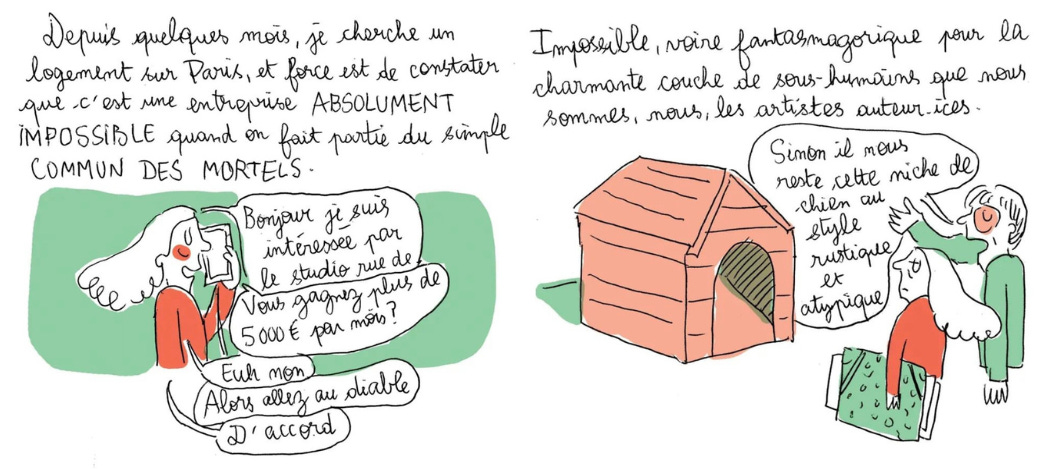 Depuis quelques mois, je cherche un
logement sur Paris, et force est de constater
que c'est une entreprise ABSOLUMENT
IMPOSSIBLE quand on fait partie du simple
COMMUN DES MORTELS.
Bonjour je suis
intéressée par
le studio rue de
Vous gagnez plus de
5000 € par mois?
Euh non
Alors allez au diable
D'accord
Impossible, voire fantasmagorique pour la
charmante couche de sous-humains que nous
sommes, nous, les artistes auteur·ices.
Sinon il nous
reste cette niche de
chien au
style
rustique
et
atypique